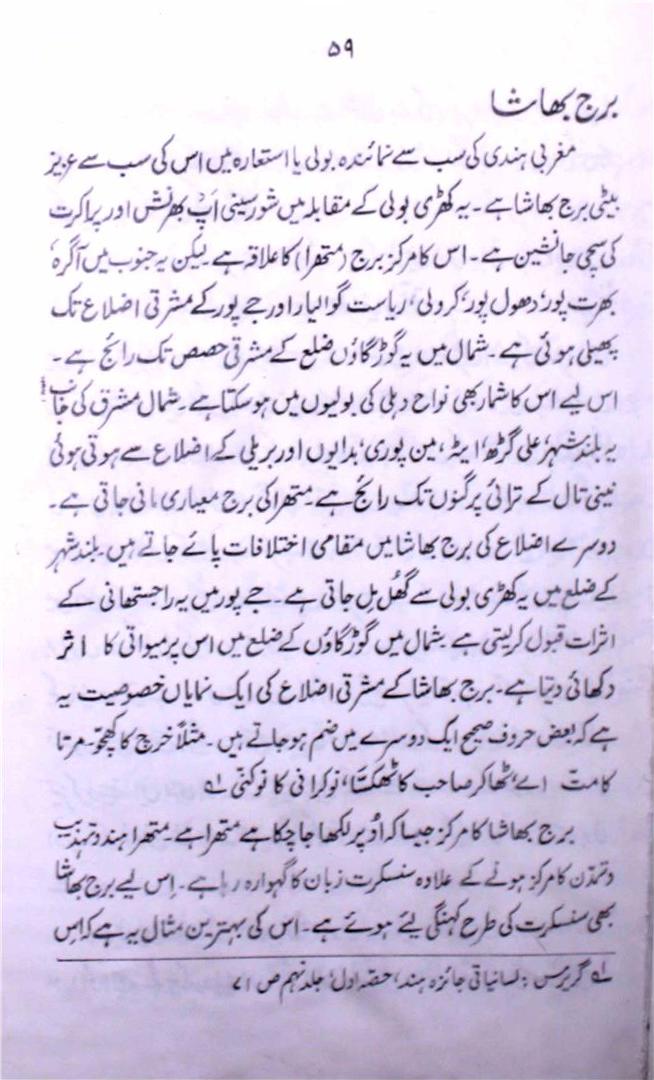 ۵۹
برج بھاشا
مغربی ہندی کی سب سے نمائندہ بولی یا استعارہ میں اس کی سب سے عزیز
بیٹی برج بھاشا ہے۔ یہ کھڑی بولی کے مقابلہ میں شورسینی اَپ بھرنش اور پراکرت
کی سچی جانشین ہے۔ اس کا مرکز برج (متھرا) کا علاقہ ہے لیکن یہ جنوب میں آگرہ،
بھرت پور، دھول پور، کرولی، ریاست گوالیار اور جے پور کے مشرقی اضلاع تک
پھیلی ہوئی ہے۔ شمال میں یہ گوڑگاؤں ضلع کے مشرقی حصص تک رائج ہے۔
اس لیے اس کا شمار بھی نواح دہلی کی بولیوں میں ہو سکتا ہے۔ شمال مشرق کی جانب
یہ بلند شہر، علی گڑھ، ایٹہ، مین پوری، بدایوں اور بریلی کے اضلاع سے ہوتی ہوئی
نینی تال کے ترائی پرگنوں تک رائج ہے۔ متھرا کی برج معیاری مانی جاتی ہے۔
دوسرے اضلاع کی برج بھاشا میں مقامی اختلافات پائے جاتے ہیں۔ بلند شہر
کے ضلع میں یہ کھڑی بولی سے گھُل مل جاتی ہے۔ جے پور میں یہ راجستھانی کے
اثرات قبول کر لیتی ہے۔ شمال میں گوڑگاؤں کے ضلع میں اس پر میواتی کا اثر
دکھائی دیتا ہے۔ برج بھاشا کے مشرقی اضلاع کی ایک نمایاں خصوصیت یہ
ہے کہ بعض حروف صحیح ایک دوسرے میں ضم ہو جاتے ہیں۔ مثلاً خرچ کا کھچّو۔ مرتا
کا مت اے، ٹھاکر صاحب کا ٹھکسّا، نوکرانی کا نوکنی لہ
برج بھاشا کا مرکز جیسا کہ اوپر لکھا جا چکا ہے متھرا ہے۔ متھرا ہندو تہذیب
و تمدن کا مرکز ہونے کے علاوہ سنسکرت زبان کا گہوارہ رہا ہے۔ اِس لیے برج بھاشا
بھی سنسکرت کی طرح کہنگی لیئے ہوئے ہے۔ اس کی بہترین مثال یہ ہے کہ اس
لہ گریرسن: لسانیاتی جائزہ ہند، حصّہ اول، جلد نہم ص ۷۱